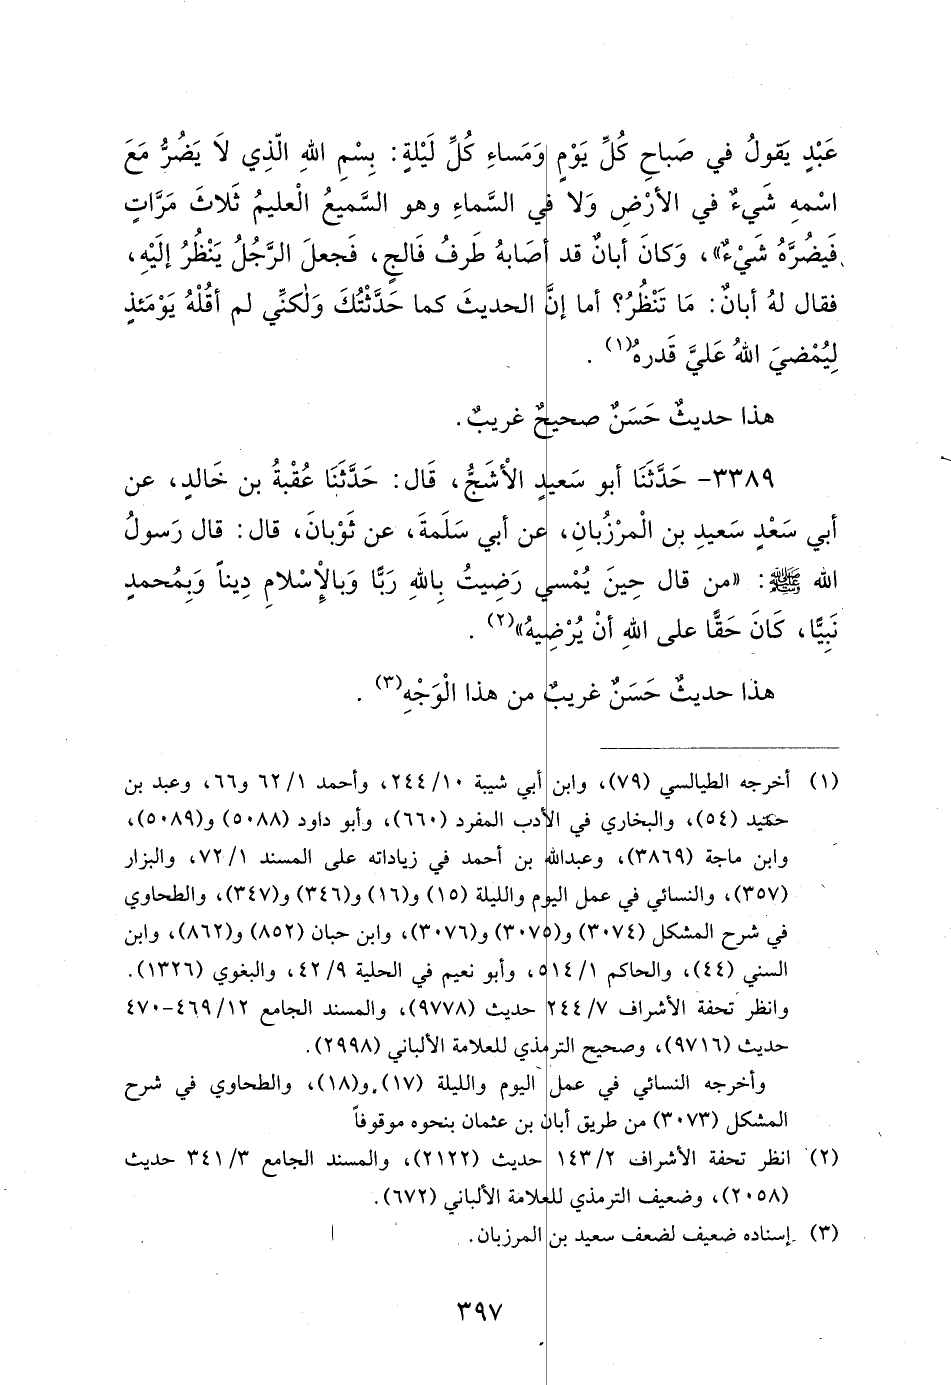 عَبْدٍ يَقولُ في صَباحِ كُلِّ يَوْمٍ وَمَساءِ كُلِّ لَيْلةٍ: بِسْمِ اللهِ الَّذِي لَا يَضُرُّ مَعَ
اسْمهِ شَيءٌ في الأرْضِ وَلا في السَّماءِ وهو السَّميعُ الْعليمُ ثَلاثَ مَرَّاتٍ
فَيضُرَّهُ شَيْءٌ»، وَكانَ أبانٌ قد أصَابهُ طَرفُ فَالجٍ، فَجعلَ الرَّجُلُ يَنْظُرُ إليْهِ،
فقال لهُ أبانٌ: مَا تَنْظُرُ؟ أما إنَّ الحديثَ كما حَدَّثْتُكَ وَلٰكنِّي لم أقُلْهُ يَوْمَئذٍ
لِيُمْضيَ اللهُ عَليَّ قَدرهُ(١) .
هذا حديثٌ حَسَنٌ صحيحٌ غريبٌ.
٣٣٨٩- حَدَّثَنَا أبو سَعيدٍ الْأشَجُّ، قَال: حَدَّثَنَا عُقْبةُ بن خَالدٍ، عن
أبي سَعْدٍ سَعيدِ بن الْمرْزُبانِ، عن أبي سَلَمةَ، عن ثَوْبانَ، قال: قال رَسولُ
الله ﷺ: «من قال حِينَ يُمْسي رَضِيتُ بِاللهِ رَبًّا وَبالْإسْلامِ دِيناً وَبِمُحمدٍ
نَبِيًّا، كَانَ حَقًّا على اللهِ أنْ يُرْضِيهُ»(٢) .
هذا حديثٌ حَسَنٌ غريبٌ من هذا الْوَجْهِ(٣) .
(١) أخرجه الطيالسي (٧٩)، وابن أبي شيبة ١٠/ ٢٤٤، وأحمد ١/ ٦٢ و٦٦، وعبد بن
حميد (٥٤)، والبخاري في الأدب المفرد (٦٦٠)، وأبو داود (٥٠٨٨) و(٥٠٨٩)،
وابن ماجة (٣٨٦٩)، وعبدالله بن أحمد في زياداته على المسند ١/ ٧٢، والبزار
(٣٥٧)، والنسائي في عمل اليوم والليلة (١٥) و(١٦) و(٣٤٦) و(٣٤٧)، والطحاوي
في شرح المشكل (٣٠٧٤) و(٣٠٧٥) و(٣٠٧٦)، وابن حبان (٨٥٢) و(٨٦٢)، وابن
السني (٤٤)، والحاكم ١/ ٥١٤، وأبو نعيم في الحلية ٩/ ٤٢، والبغوي (١٣٢٦).
وانظر تحفة الأشراف ٧/ ٢٤٤ حديث (٩٧٧٨)، والمسند الجامع ١٢/ ٤٦٩-٤٧٠
حديث (٩٧١٦)، وصحيح الترمذي للعلامة الألباني (٢٩٩٨).
وأخرجه النسائي في عمل اليوم والليلة (١٧) و(١٨)، والطحاوي في شرح
المشكل (٣٠٧٣) من طريق أبان بن عثمان بنحوه موقوفاً
(٢) انظر تحفة الأشراف ٢/ ١٤٣ حديث (٢١٢٢)، والمسند الجامع ٣/ ٣٤١ حديث
(٢٠٥٨)، وضعيف الترمذي للعلامة الألباني (٦٧٢).
(٣) إسناده ضعيف لضعف سعيد بن المرزبان.
٣٩٧